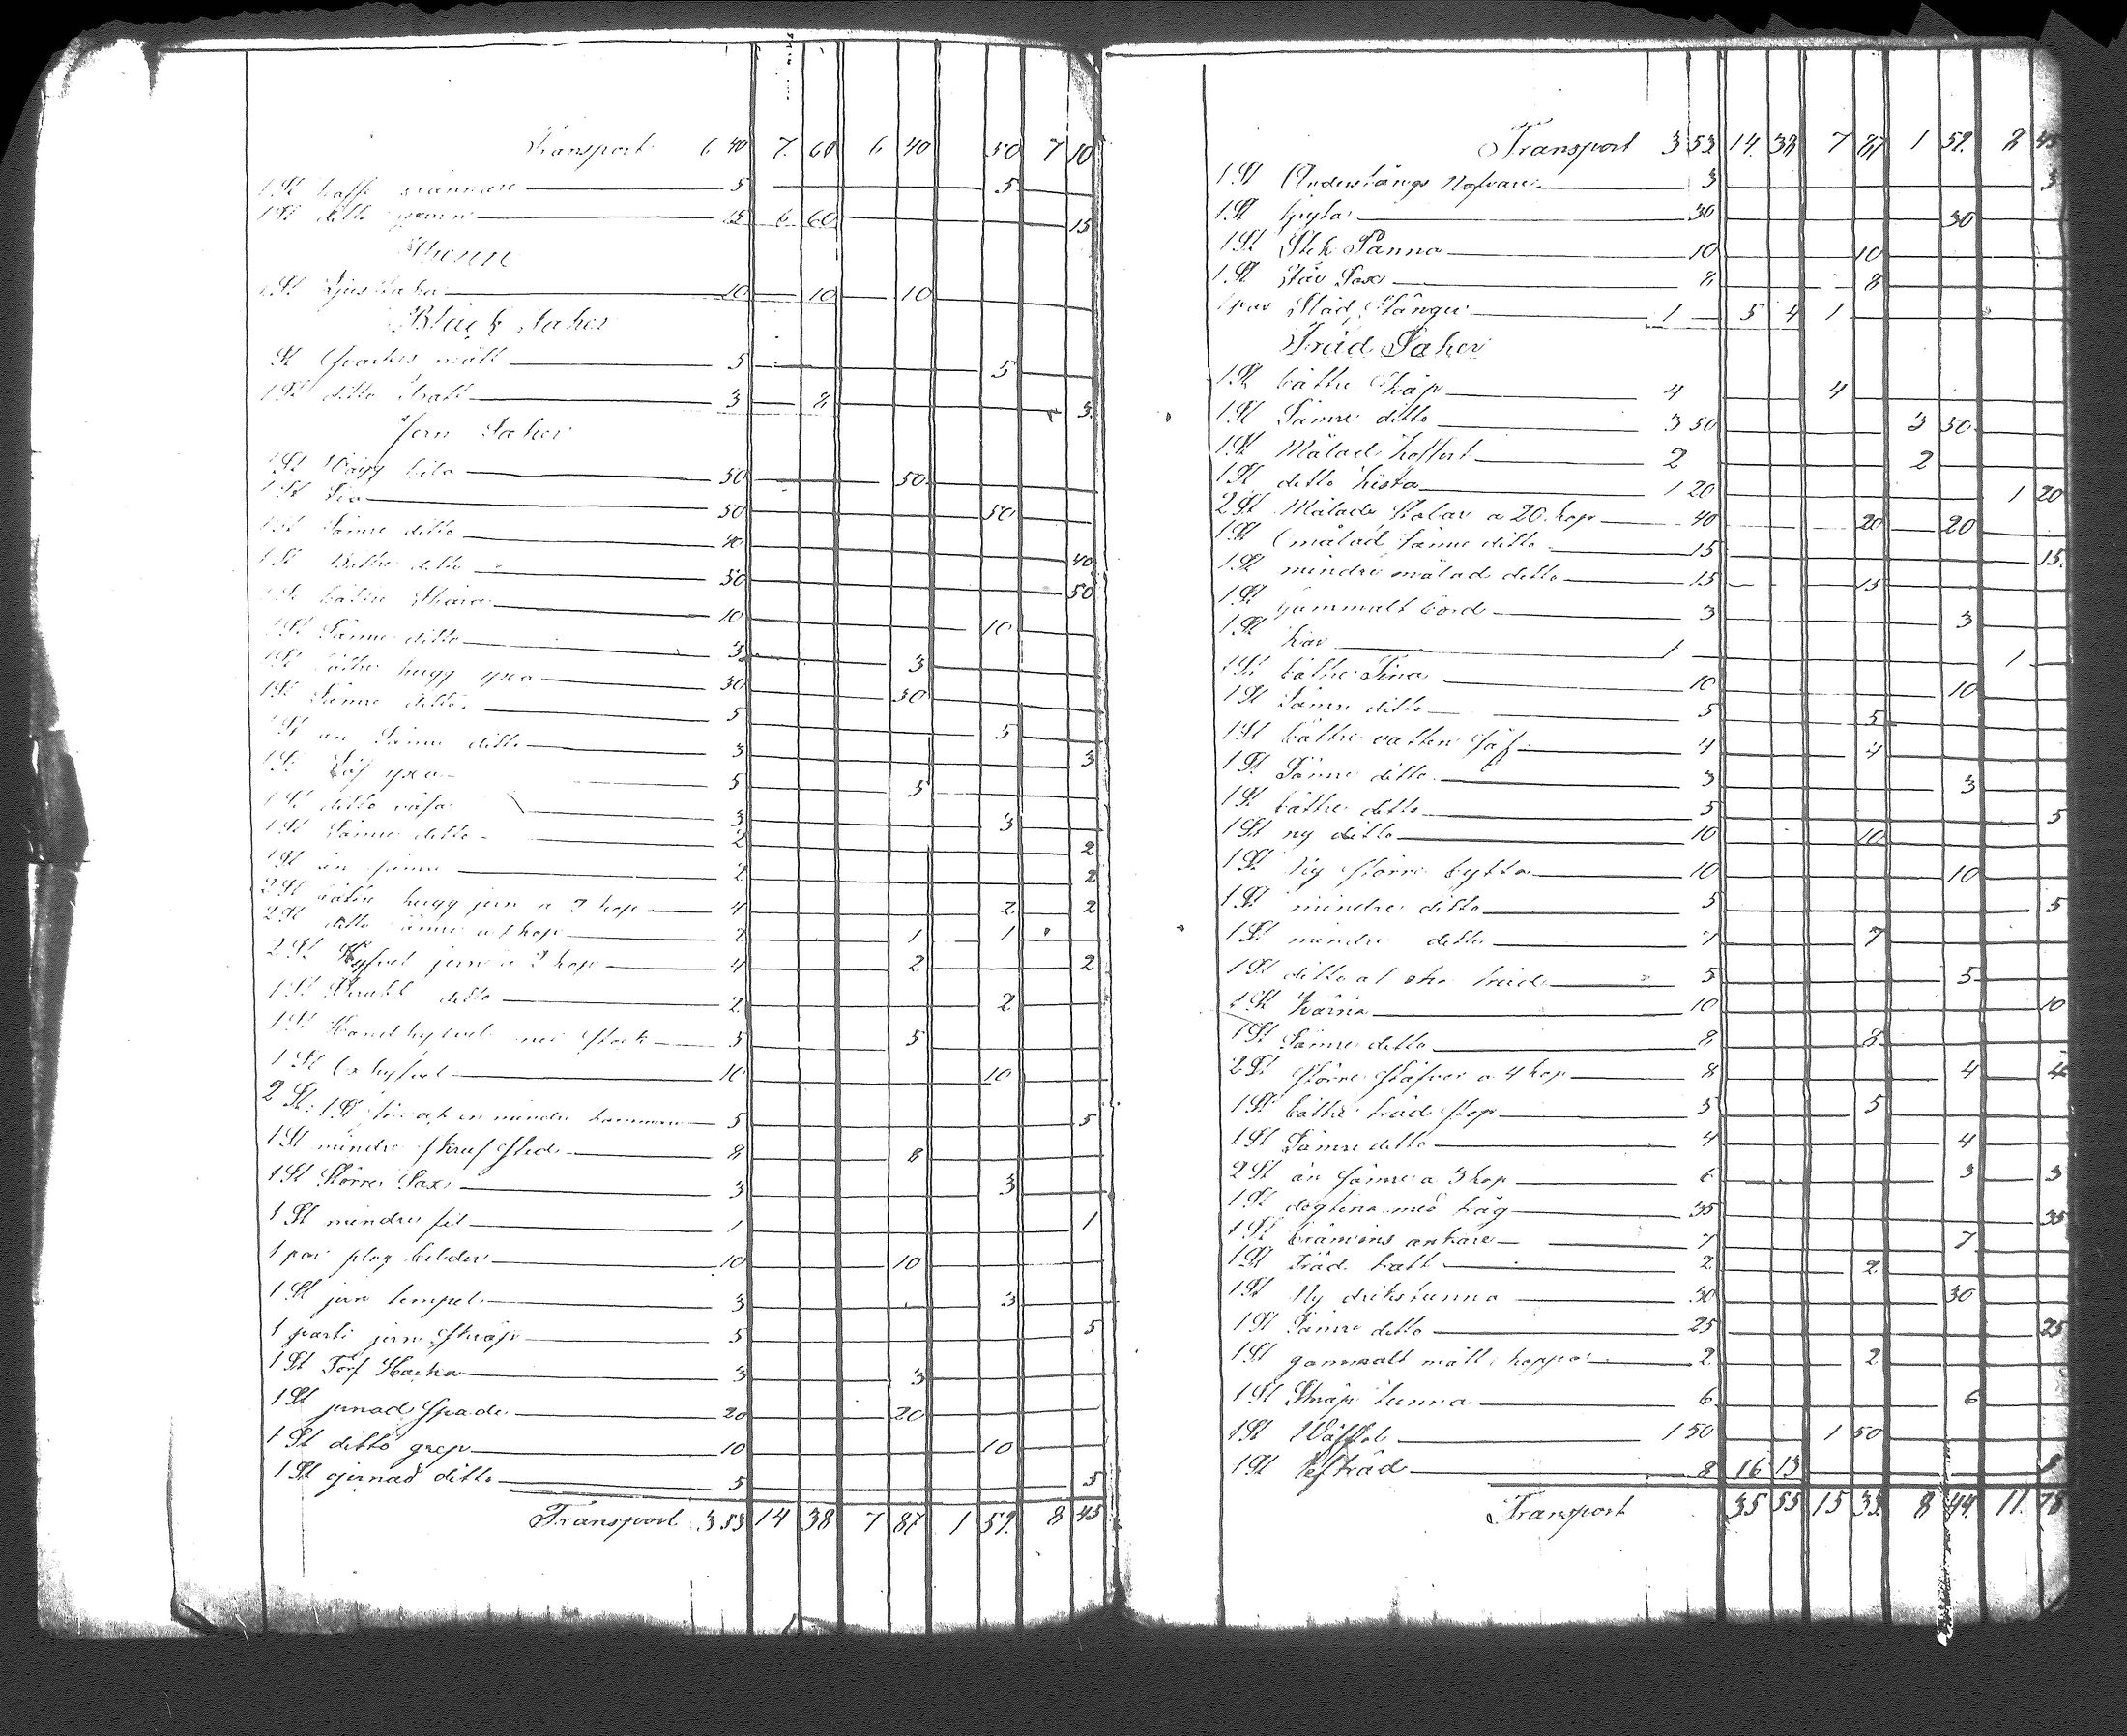 Transport 6 40 7. 60 6 40 50 7 10
1 St kaffe brännare 5 5
1 St ditto qvarn 15 6 60 15
1 St Ljus Staka 10 10 10
Bläck Saker
St Qvarters mått 5 5
1 St ditto tratt 3 8 3
Jern Saker
1 St Vägg bila 50 50
1 St Lia 50 50
1 St Sämre ditto 40 40
1 St Bättre ditto 50 50
1 St bättre Skära 10 10
1 St Sämre ditto 3 3
1 St bättre hugg yxa 30 30
1 St Sämre ditto 5 5
1 St än Sämre ditto 3 3
1 St Löf yxa 5 5
1 St ditto 3 3
1 St Sämre ditto 2 2
1 St än sämre 2 2
2 St bättre hugg jern a 2 kop 4 2 2
2 St ditto sämre a 1 kop 2 1 1
2 St Hyfvel jern a 2 kop 4 2 2
1 St ditto 2 2
1 St Handhyfvel med Stock 5 5
1 St Oxhyfvel 10 10
2 St: 1 St större och en mindre hammare 5 5
1 St mindre Skruf Sted 8 8
1 St Större Sax 3 3
1 St mindre fil 1 1
1 par plog billder 10 10
1 St jern tempel 3 3
1 parti jern Skräp 5 5
1 St Torf Hacka 3 3
1 St jernad Spade 20 20
1 St ditto grep 10 10
1 St ojernad ditto 5 5
Transport 3 53 14 38 7 87 1 59. 8 45
Transport 3 53. 14. 38 7 87 1 59. 8 45
1 St Anderstångs Nafvare 3 3
1 St Gryta 30 30
1 St Stek Panna 10 10
1 St Får Sax 8 8
1 par Släd Stänger 1 5 4 1
Träd Saker
1 St bättre Skåp 4 4
1 St Sämre ditto 3 50 3 50
1 St Målad koffert 2 2
1 St ditto kista 1 20 1 20
2 St Målade Stolar a 20 kop 40 20 20
1 St Omålad Sämre ditto 15 15.
1 St mindre målad ditto 15 15
1 St gammalt bord 3 3
1 St kar 1 1
1 St bättre Tina 10 10
1 St Sämre ditto 5 5
1 St bättre vatten Såf 4 4
1 St Sämre ditto 3 3
1 St bättre ditto 5 5
1 St ny ditto 10 10
1 St Ny större bytta 10 10
1 St mindre ditto 5 5
1 St mindre ditto 7 7
1 St ditto af eke träd 5 5
1 St Kärna 10 10
1 St Sämre ditto 8 8
2 St Större Stäfvor a 4 kop 8 4 4
1 St bättre träd Stop 5 5
1 St Sämre ditto 4 4
2 St än Sämre a 3 kop 6 3 3
1 St degtina med tråg 35 35
1 St bränvins ankare 7 7
1 St träd tratt 2 2
1 St Ny drikstunna 30 30
1 St Sämre ditto 25 25
1 St gammalt mått, koppa 2 2
1 St Skräp tunna 6 6
1 St Väfstol 1 50 1 50
1 St träd 8 16 13 8
Transport 35 55 15 33. 8 44. 11. 78